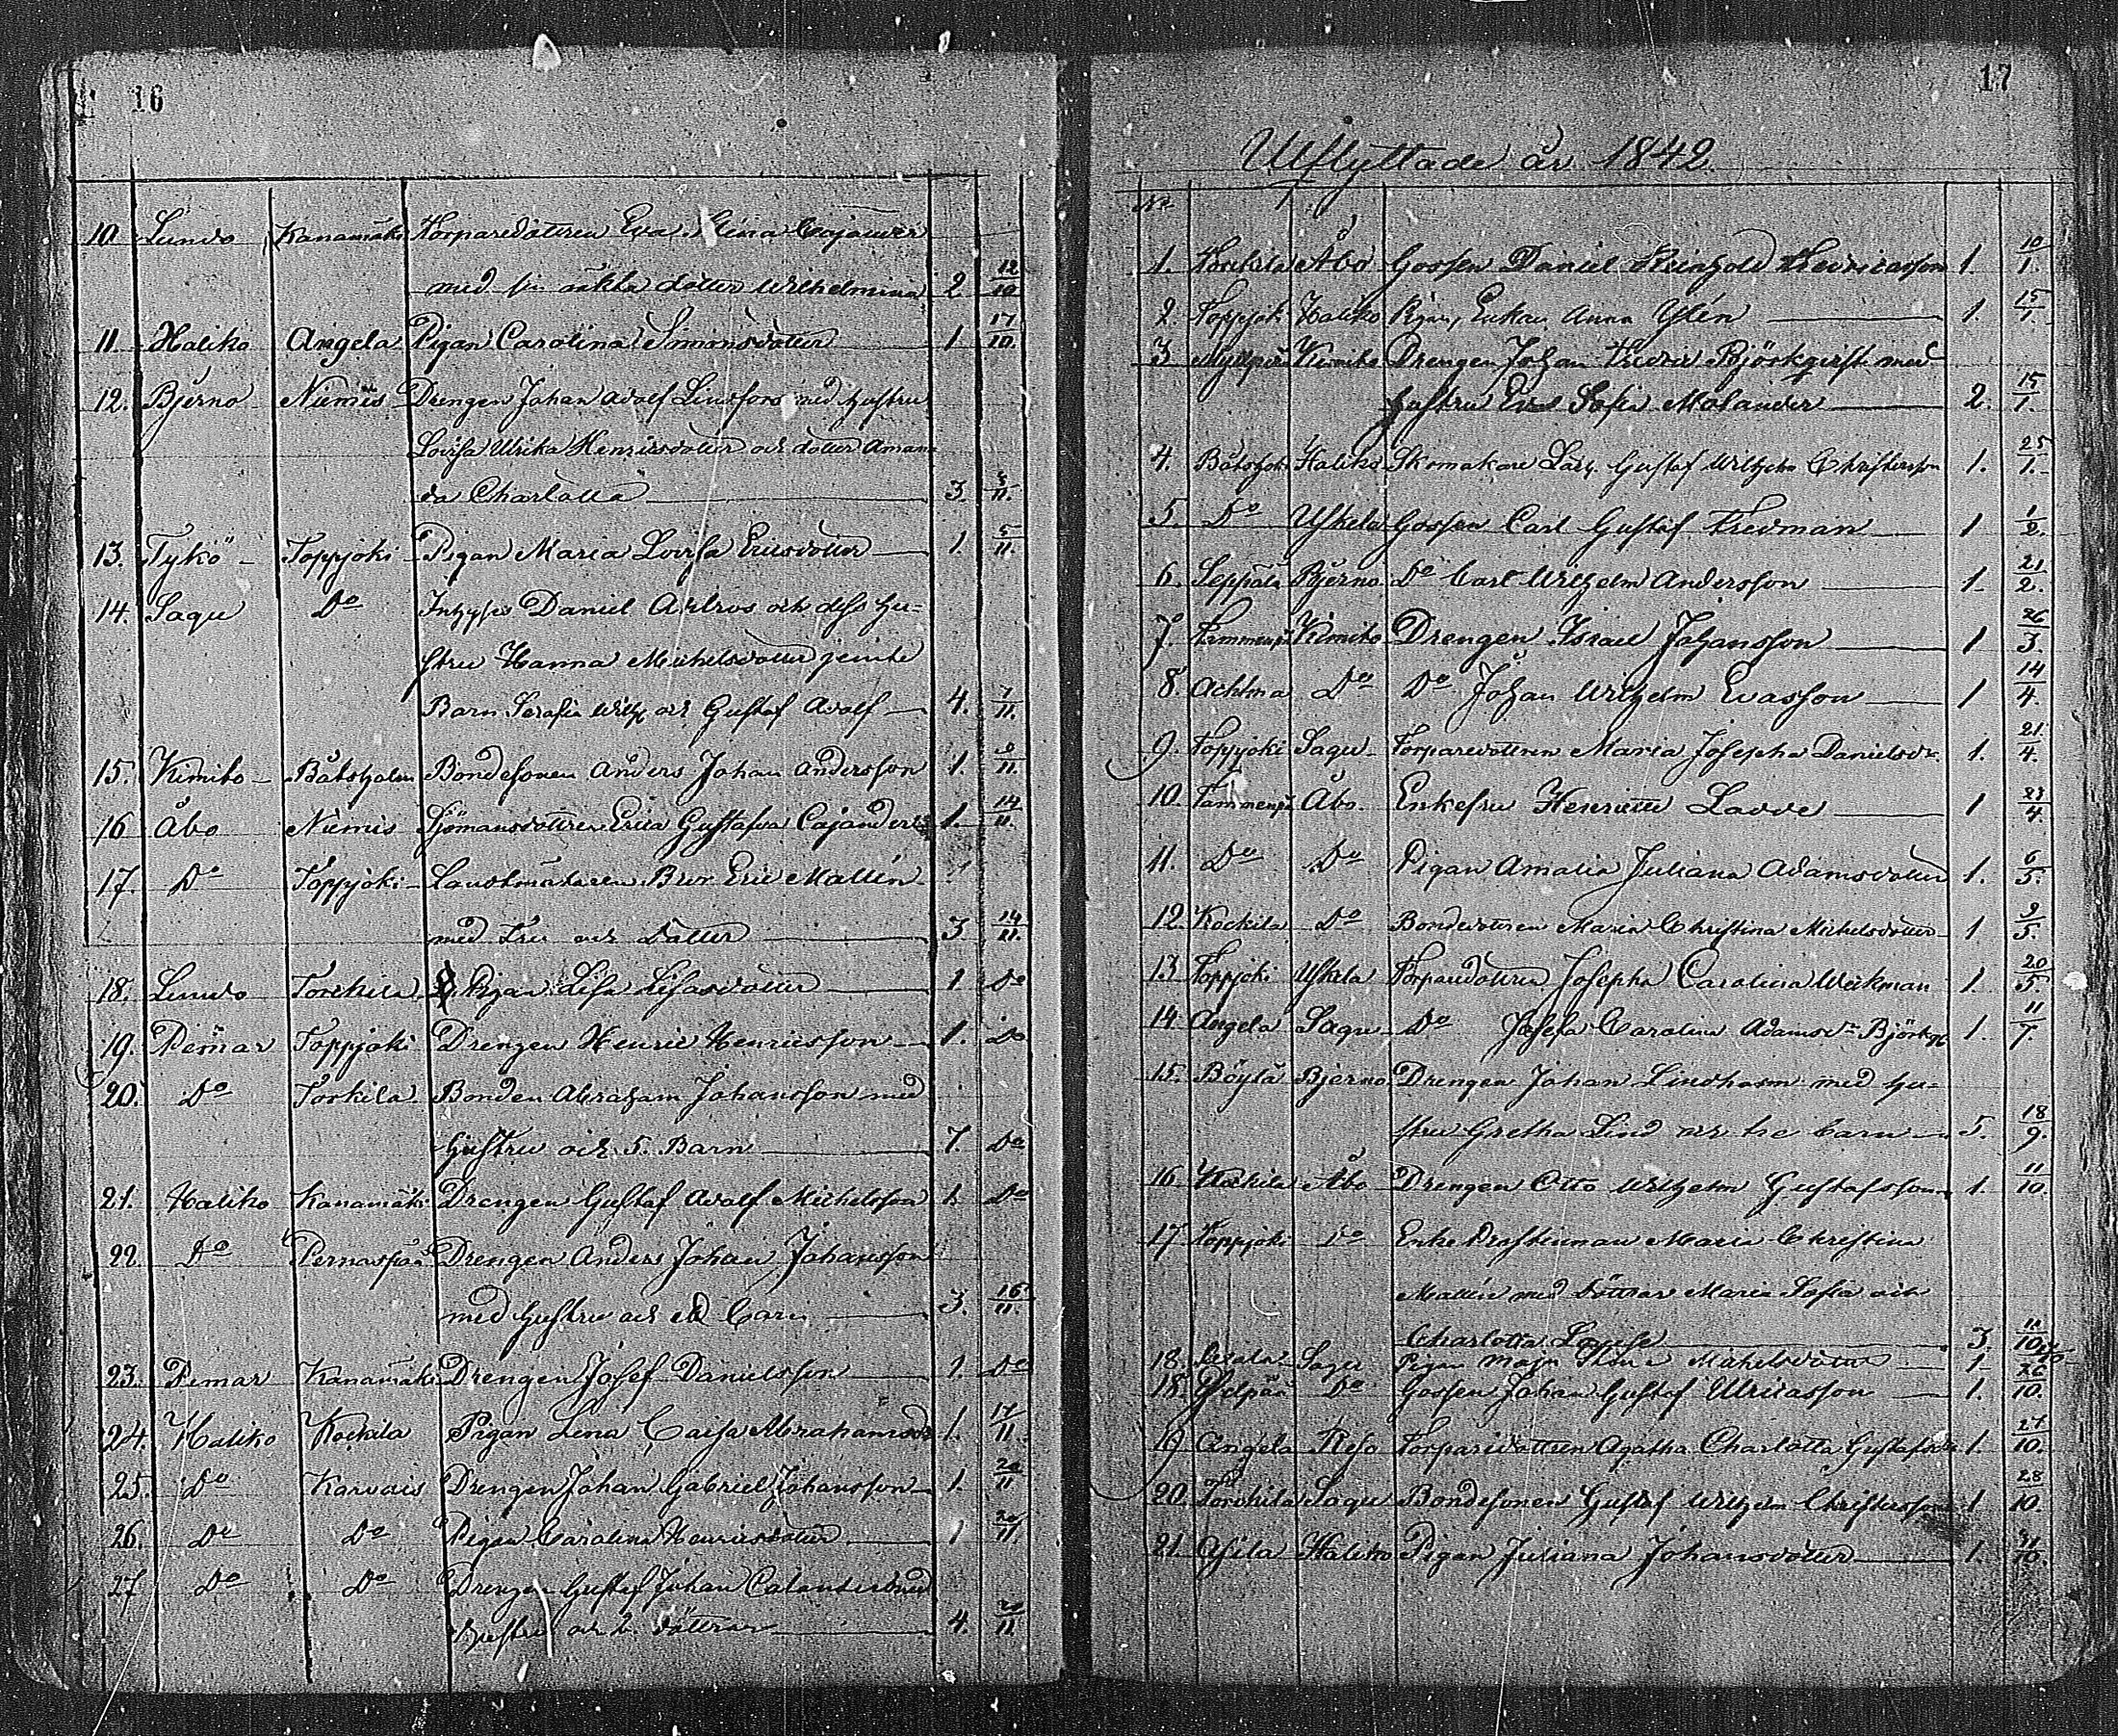 16
10 Lundo Kanamäki Torparedottren Eva Stina Cajander
med sin oäkta dotter Wilhelmina 2 12/10
11 Haliko Angela Pigan Carolina Simonsdotter 1. 17/10.
12. Bjerno Niemis Drengen Johan Adolf Lindfors med hustru
Lovisa Ulrika Henricsdotter och dotter Aman
da Charlotta 3. 5/11.
13. Tykö Toppjoki Pigan Maria Lovisa Ericsdotter 1. 5/11.
14. Sagu Do Inhyses Daniel och dess hu=
stru Hanna Michelsdotter jemte
Barn Serafia Wilh och Gustaf Adolf 4. 7/11.
15. Kimito Båtsholm Bondesonen Anders Johan Andersson 1. /11.
16 Åbo Niemis Sjömansdottren Erica Gustafva Cajander 1. 14/11.
17. Do Toppjoki Landtmätaren Eric Mallén
med Fru och Dotter 3 14/11.
18. Lundo Torckila Pigan Lisa Lisasdotter 1 Do
19. Pemar Toppjoki Drengen Henric Henricsson 1. Do
20. Do Torkila Bonden Abraham Johansson med
hustru och 5. Barn 7. Do
21. Haliko Kanamäki Drengen Gustaf Adolf Michelsson 1. Do
22 Do Pernaspää Drengen Anders Johan Johansson
med hustru och ett barn 3. 16/11.
23. Pemar Kanamäki Drengen Josef Danielsson 1. Do
24. Haliko Kockila Pigan Lena Caisa Abrahamsdr 1. 17/11.
25. Do Karvais Drengen Johan Gabriel Johansson 1. 20/11
26. Do Do Pigan Carolina Henricsdotter 1 20/11.
27 Do Do Drengen Gustaf Johan Calander med
hustru och 2. döttrar 4. 20/11.
17
Utflyttade år 1842.
No
1. Torckila Åbo Gossen Daniel Reinhold 1 10/1.
2. Toppjoki Haliko Enkan Anna Ylén 1. 15/1.
3 Kimito Drengen Johan Fredric Björkqvist med
hustru Eva Sofia Molander 2. 15/1.
4. Båtsholm Haliko Skomakare Gustaf Wilhelm Christersson 1. 25/1.
5. Do Uskela Gossen Carl Gustaf Fredman 1 1/2.
6. Seppälä Bjerno Do Carl Wilhelm Andersson 1. 21/2.
7. Tammenpä Kimito Drengen Israel Johansson 1 26/3.
8. Achtma Do Do Johan Wilhelm Evasson 1 14/4.
9. Toppjoki Sagu Torparedottren Maria Josepha Danielsdr. 1. 21/4.
10. Tammenpä Åbo. Enkefru Henriette Ladde 1 23/4.
11. Do Do Pigan Amalia Juliana Adamsdotter 1. 6/5.
12. Kockila Do Bondedottren Maria Christina Michelsdotter 1 9/5.
13 Toppjoki Uskela Torparedottren Josepha Carolina Weckman 1. 20/5.
14 Angela Sagu Do Josefa Carolina Adamsdr Björkqv 1. 11/7.
15. Böylä Bjerno Drengen Johan Lindholm med hu=
stru Gretha Lind och tre barn 5. 18/9.
16. Kockila Åbo Drengen Otto Wilhelm Gustafsson 1. 11/10.
17 Toppjoki Do Enke Maria Christina
Mallén med döttrar Maria Sofia och
Charlotta Lovisa 3. 11/10
18. Sagu Pigan Maja Stina Michelsdotter 1.
18. Do Gossen Johan Gustaf Ulricasson 1. 26/10.
19 Angela Reso Torparedottren Agatha Charlotta Gustafsdr 1. 27/10.
20. Torckila Sagu Bondesonen Gustaf Wilhelm Christersson 1 28/10.
21. Haliko Pigan Juliana Johansdotter 1. 31/10.